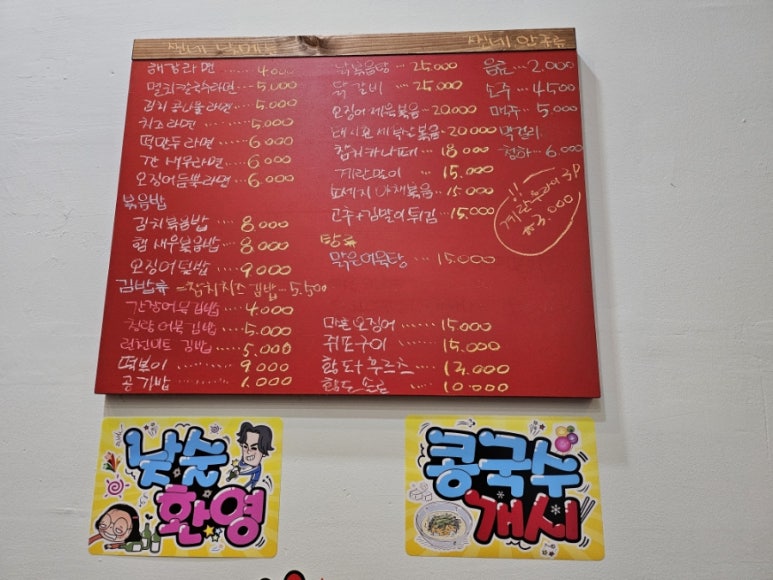 씬네 낮메뉴
해장라면 ..... 4,000
멸치칼국수라면 ... 5,000
김치콩나물라면 .... 5,000
치즈라면 ..... 5,000
떡만두라면 ..... 6,000
간새우라면 .... 6,000
오징어듬뿍라면 .. 6,000
볶음밥
김치볶음밥 .... 8,000
햄새우볶음밥 .... 8,000
오징어덮밥 .... 9,000
김밥류 = 참치치즈김밥 .. 5,500
간장어묵김밥 .... 4,000
청양어묵김밥 ..... 5,000
런천미트 김밥 .... 5,000
떡볶이 ..... 9,000
공기밥 ..... 1,000
씬네 안주류
닭볶음탕 .... 25,000
닭갈비 ..... 25,000
오징어제육볶음 .. 20,000
볶음 .. 20,000
참치카나페 ... 18,000
계란말이 .. 15,000
소세지야채볶음 .. 15,000
고추+김말이튀김 .. 15,000
탕류
맑은어묵탕 ..... 15,000
마른오징어 ...... 15,000
쥐포구이 .... 15,000
황도
황도 10,000
음료 .. 2,000
소주 .. 4,500
맥주 .. 5,000
막걸리
청하 .. 6,000
!!
계란후라이 3P
₩3,000
낮술
환영
콩국수
개시